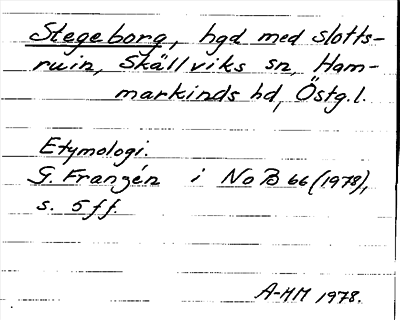 Stegeborg, hgd med slotts-
ruin, Skällviks sn, Ham-
markinds hd, Östg.l.
Etymologi.
G. Franzén i NoB 66 (1978),
s. 5 ff.
A-MM 1978.